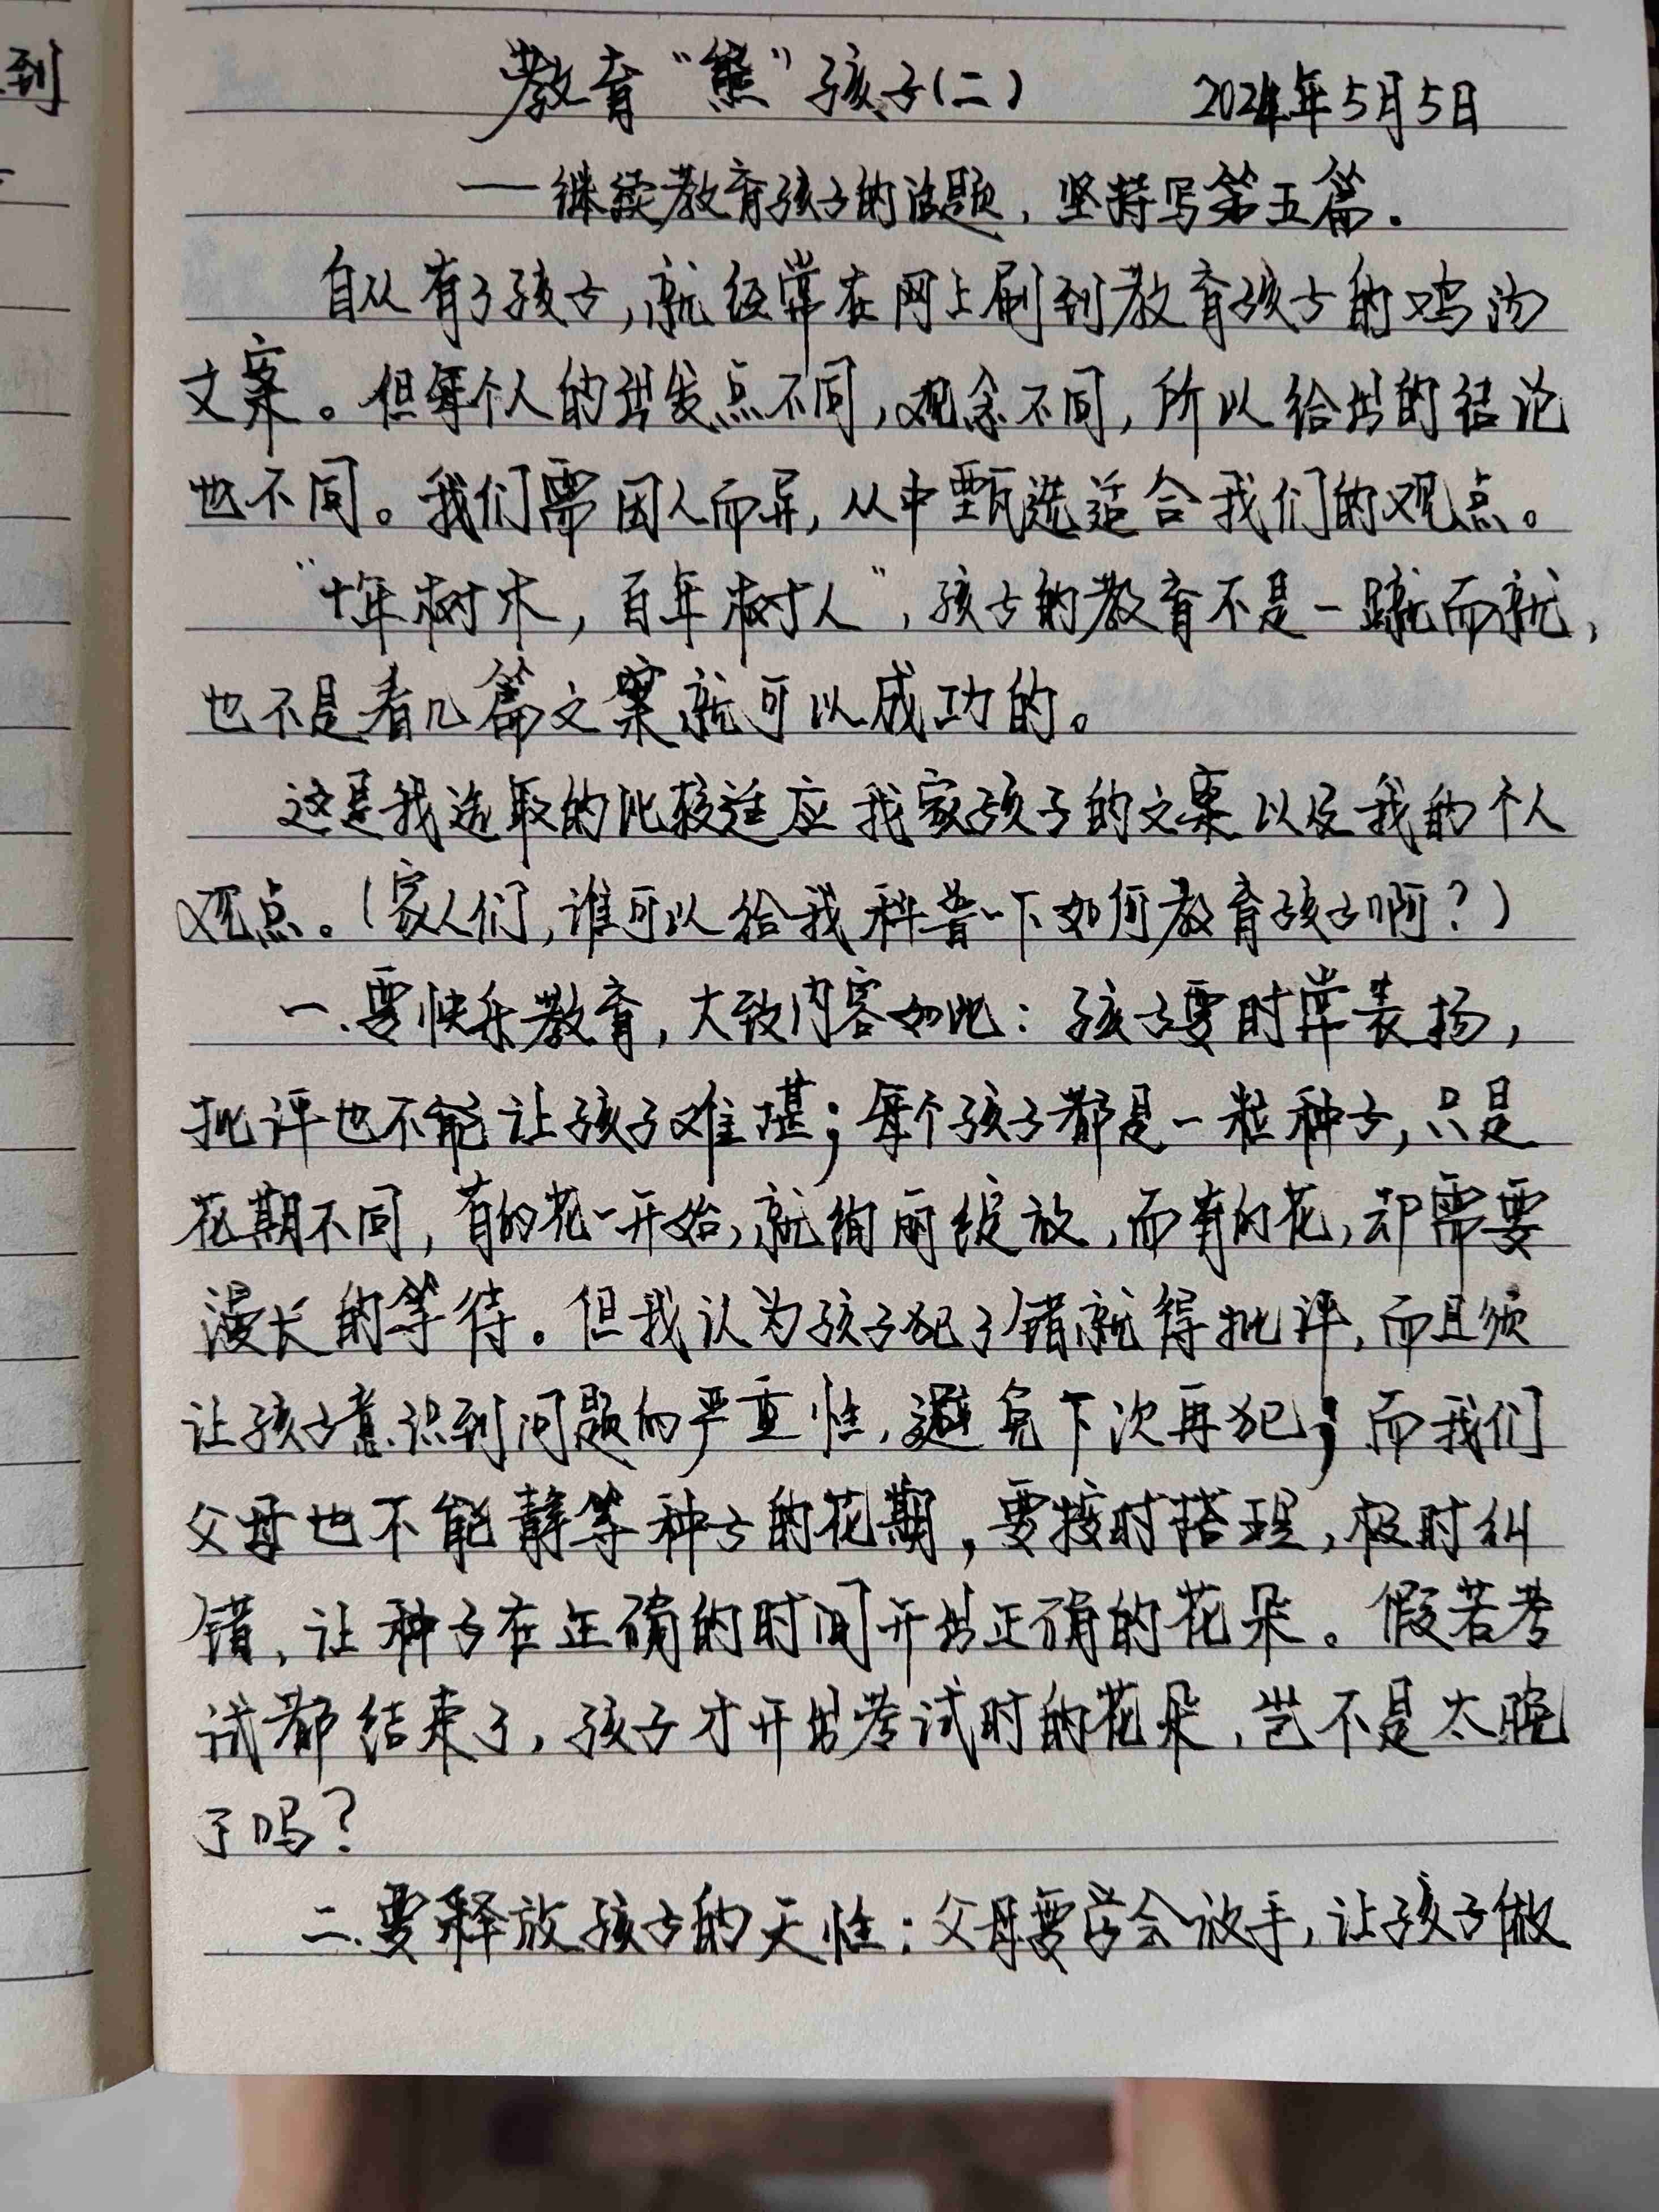 到
教育“熊”孩子(二) 2024年5月5日
——继续教育孩子的话题，坚持写第五篇.
自从有了孩子,就经常在网上刷到教育孩子的鸡汤
文案。但每个人的出发点不同,观念不同,所以给出的结论
也不同。我们需因人而异,从中甄选适合我们的观点。
“十年树木,百年树人”,孩子的教育不是一蹴而就,
也不是看几篇文案就可以成功的。
这是我选取的比较适应我家孩子的文案以及我的个人
观点。(家人们,谁可以给我科普一下如何教育孩子啊?)
一.要快乐教育,大致内容如此:孩子要时常表扬,
批评也不能让孩子难堪;每个孩子都是一粒种子,只是
花期不同,有的花一开始,就绚丽绽放,而有的花,却需要
漫长的等待。但我认为孩子犯了错就得批评,而且须
让孩子意识到问题的严重性,避免下次再犯;而我们
父母也不能静等种子的花期,要按时搭理,极时纠
错,让种子在正确的时间开出正确的花朵。假若考
试都结束了,孩子才开出考试时的花朵,岂不是太晚
了吗?
二.要释放孩子的天性:父母要学会放手,让孩子做